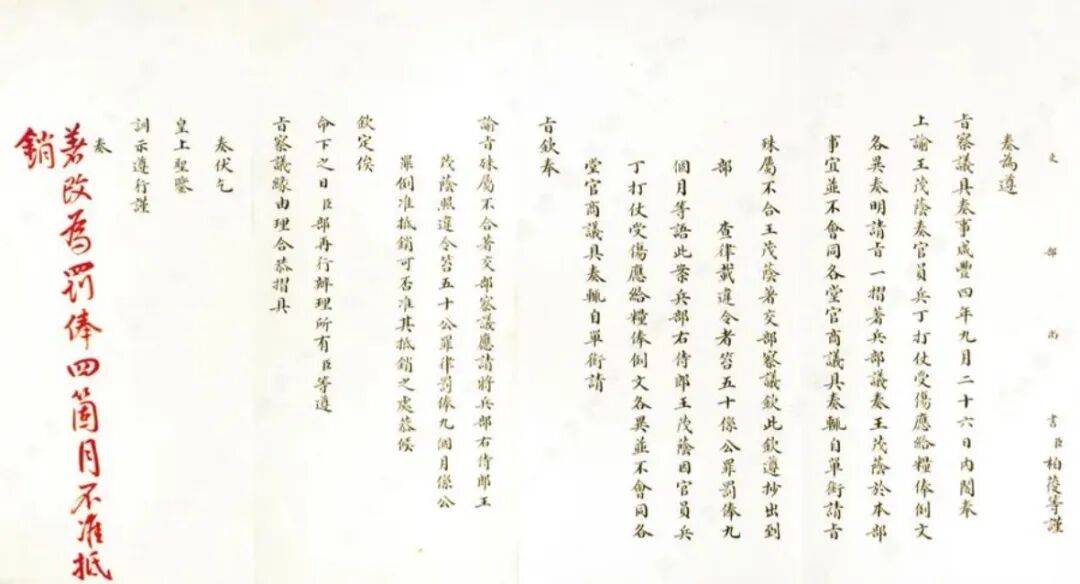 吏部尚書臣柏葰等謹
奏為遵
旨察議具奏事咸豐四年九月二十六日內閣奉
上諭王茂蔭奏官員兵丁打仗受傷應給糧俸例文
各異奏明請旨一摺著兵部議奏王茂蔭於本部
事宜並不會同各堂官商議具奏輒自單銜請旨
殊屬不合王茂蔭著交部察議欽此欽遵抄出到
部 查律載違令者笞五十係公罪罰俸九
個月等語此案兵部右侍郎王茂蔭因官員兵
丁打仗受傷應給糧俸例文各異並不會同各
堂官商議具奏輒自單銜請
旨欽奉
諭旨殊屬不合著交部察議應請將兵部右侍郎王
茂蔭照違令笞五十公罪律罰俸九個月係公
罪例准抵銷可否准其抵銷之處恭候
欽定俟
命下之日臣部再行辦理所有臣等遵
旨察議緣由理合恭摺具
奏伏乞
皇上聖鑒
訓示遵行謹
奏
著改為罰俸四箇月不准抵
銷